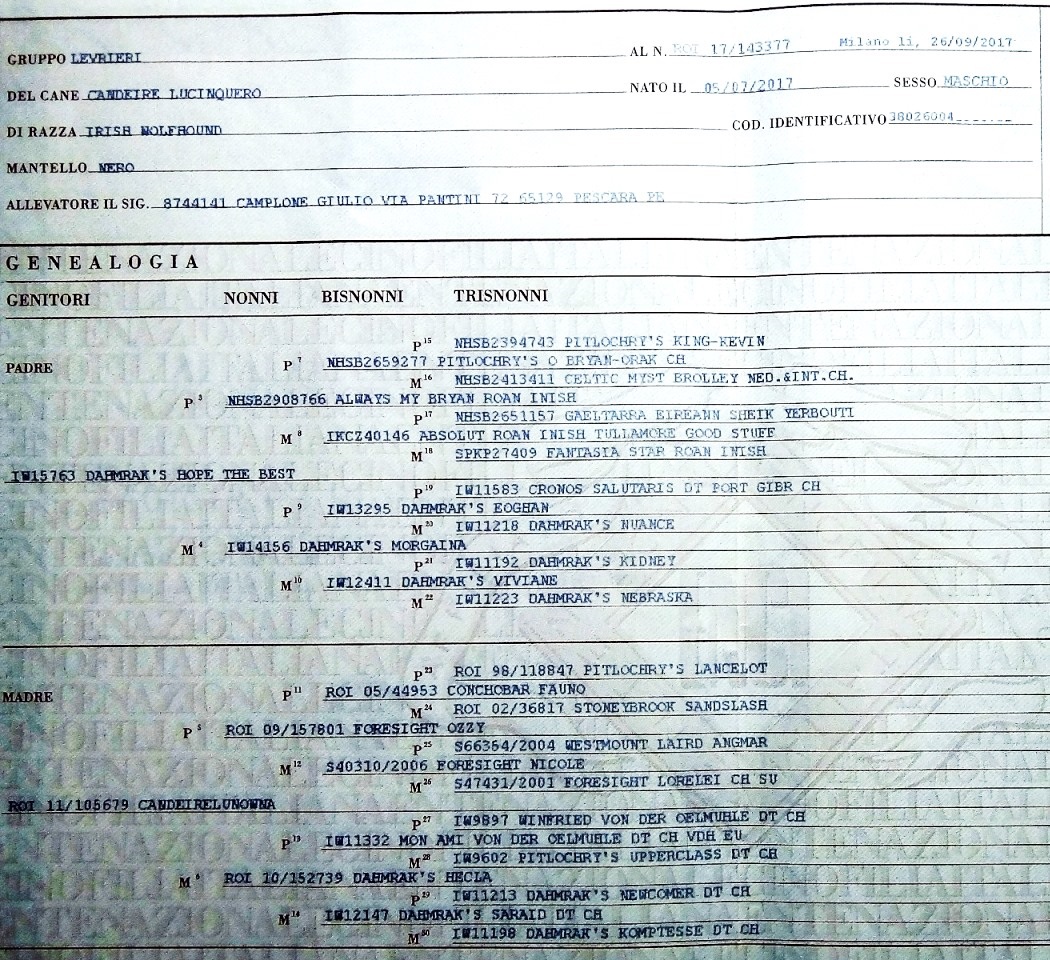 GRUPPO LEVRIERI AL N. ROI 17/143377 Milano lì, 26/09/2017
DEL CANE CANDEIRE LUCINQUERO NATO IL 05/07/2017 SESSO MASCHIO
DI RAZZA IRISH WOLFHOUND COD. IDENTIFICATIVO 38026004
MANTELLO NERO
ALLEVATORE IL SIG. 8744141 CAMPLONE GIULIO VIA PANTINI 72 65129 PESCARA PE
GENEALOGIA
GENITORI NONNI BISNONNI TRISNONNI
P15 NHSB2394743 PITLOCHRY'S KING-KEVIN
PADRE P7 NHSB2659277 PITLOCHRY'S O BRYAN-ORAK CH
M16 NHSB2413411 CELTIC MYST BROLLEY NED.&INT.CH.
P3 NHSB2908766 ALWAYS MY BRYAN ROAN INISH
P17 NHSB2651157 GAELTARRA EIREANN SHEIK YERBOUTI
M8 IKCZ40146 ABSOLUT ROAN INISH TULLAMORE GOOD STUFF
M18 SPKP27409 FANTASIA STAR ROAN INISH
IW15763 DAHMRAK'S HOPE THE BEST
P19 IW11583 CRONOS SALUTARIS DT PORT GIBR CH
P9 IW13295 DAHMRAK'S EOGHAN
M20 IW11218 DAHMRAK'S NUANCE
M4 IW14156 DAHMRAK'S MORGAINA
P21 IW11192 DAHMRAK'S KIDNEY
M10 IW12411 DAHMRAK'S VIVIANE
M22 IW11223 DAHMRAK'S NEBRASKA
P23 ROI 98/118847 PITLOCHRY'S LANCELOT
MADRE P11 ROI 05/44953 CONCHOBAR FAUNO
M24 ROI 02/36817 STONEYBROOK SANDSLASH
P5 ROI 09/157801 FORESIGHT OZZY
P25 S66354/2004 WESTMOUNT LAIRD ANGMAR
M12 S40310/2006 FORESIGHT NICOLE
M26 S47431/2001 FORESIGHT LORELEI CH SU
ROI 11/105679 CANDEIRELUNOWNA
P27 IW9897 WINFRIED VON DER OELMUHLE DT CH
P13 IW11332 MON AMI VON DER OELMUHLE DT CH VDH EU
M28 IW9602 PITLOCHRY'S UPPERCLASS DT CH
M6 ROI 10/152739 DAHMRAK'S HECLA
P29 IW11213 DAHMRAK'S NEWCOMER DT CH
M14 IW12147 DAHMRAK'S SARAID DT CH
M30 IW11198 DAHMRAK'S KOMPTESSE DT CH